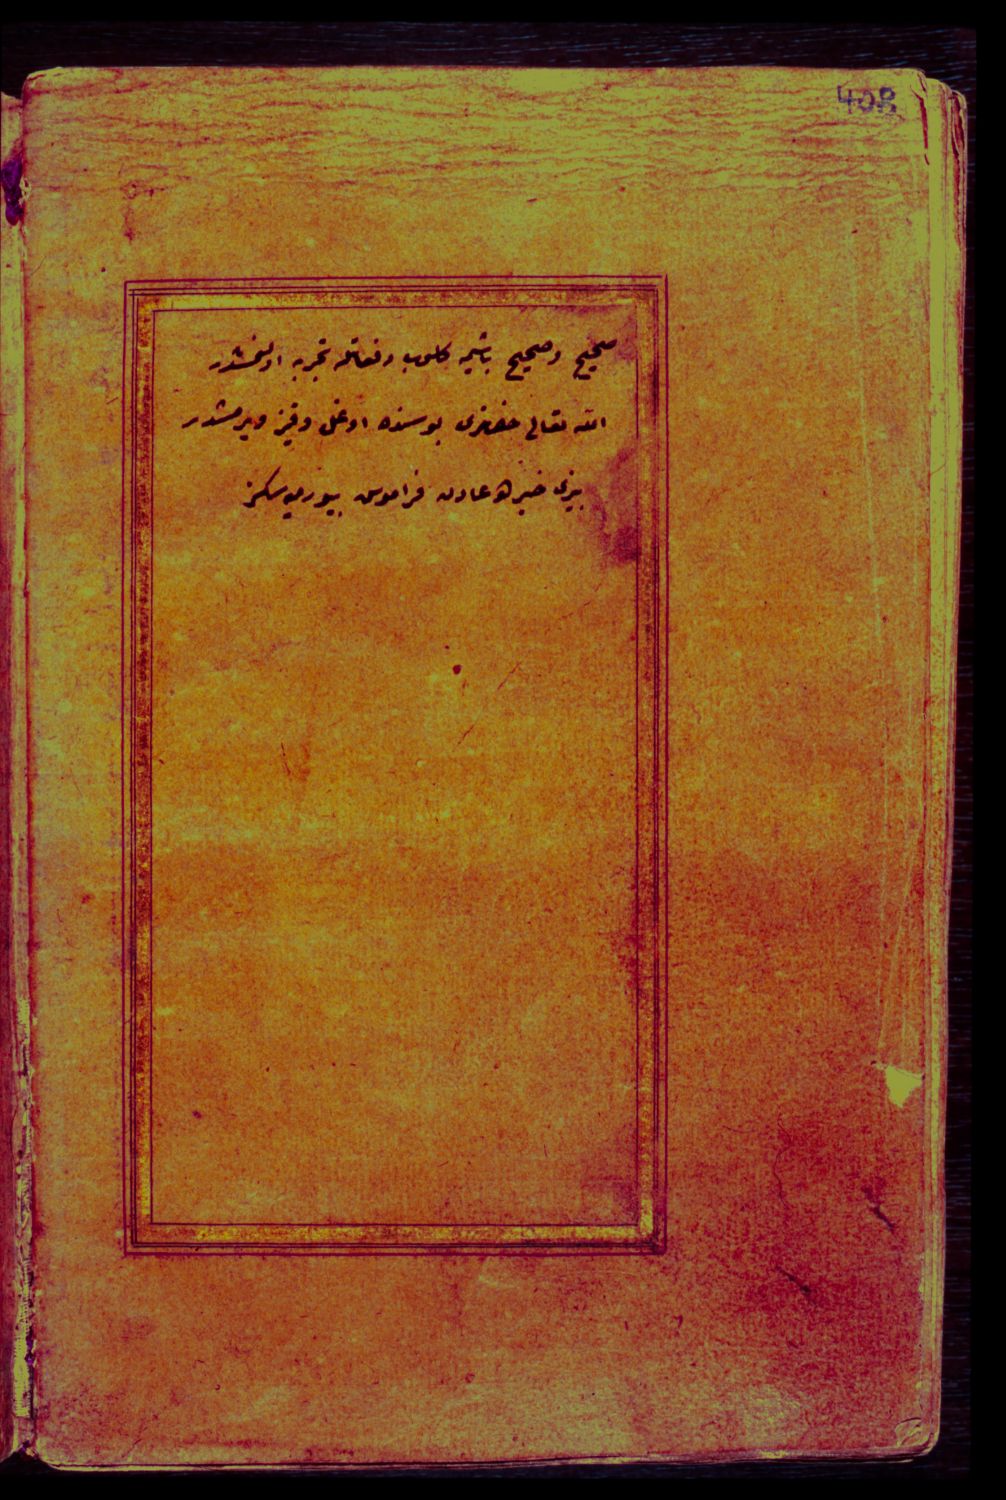 408
صحيح وصحيح باشمه كلوب دفعاتله تجربه اولنمشدر
الله تعالى حضرتلرى بو سنده اوغل وقيز ويرمشدر
بزى خير دعادن فراموش بيورميه سكز